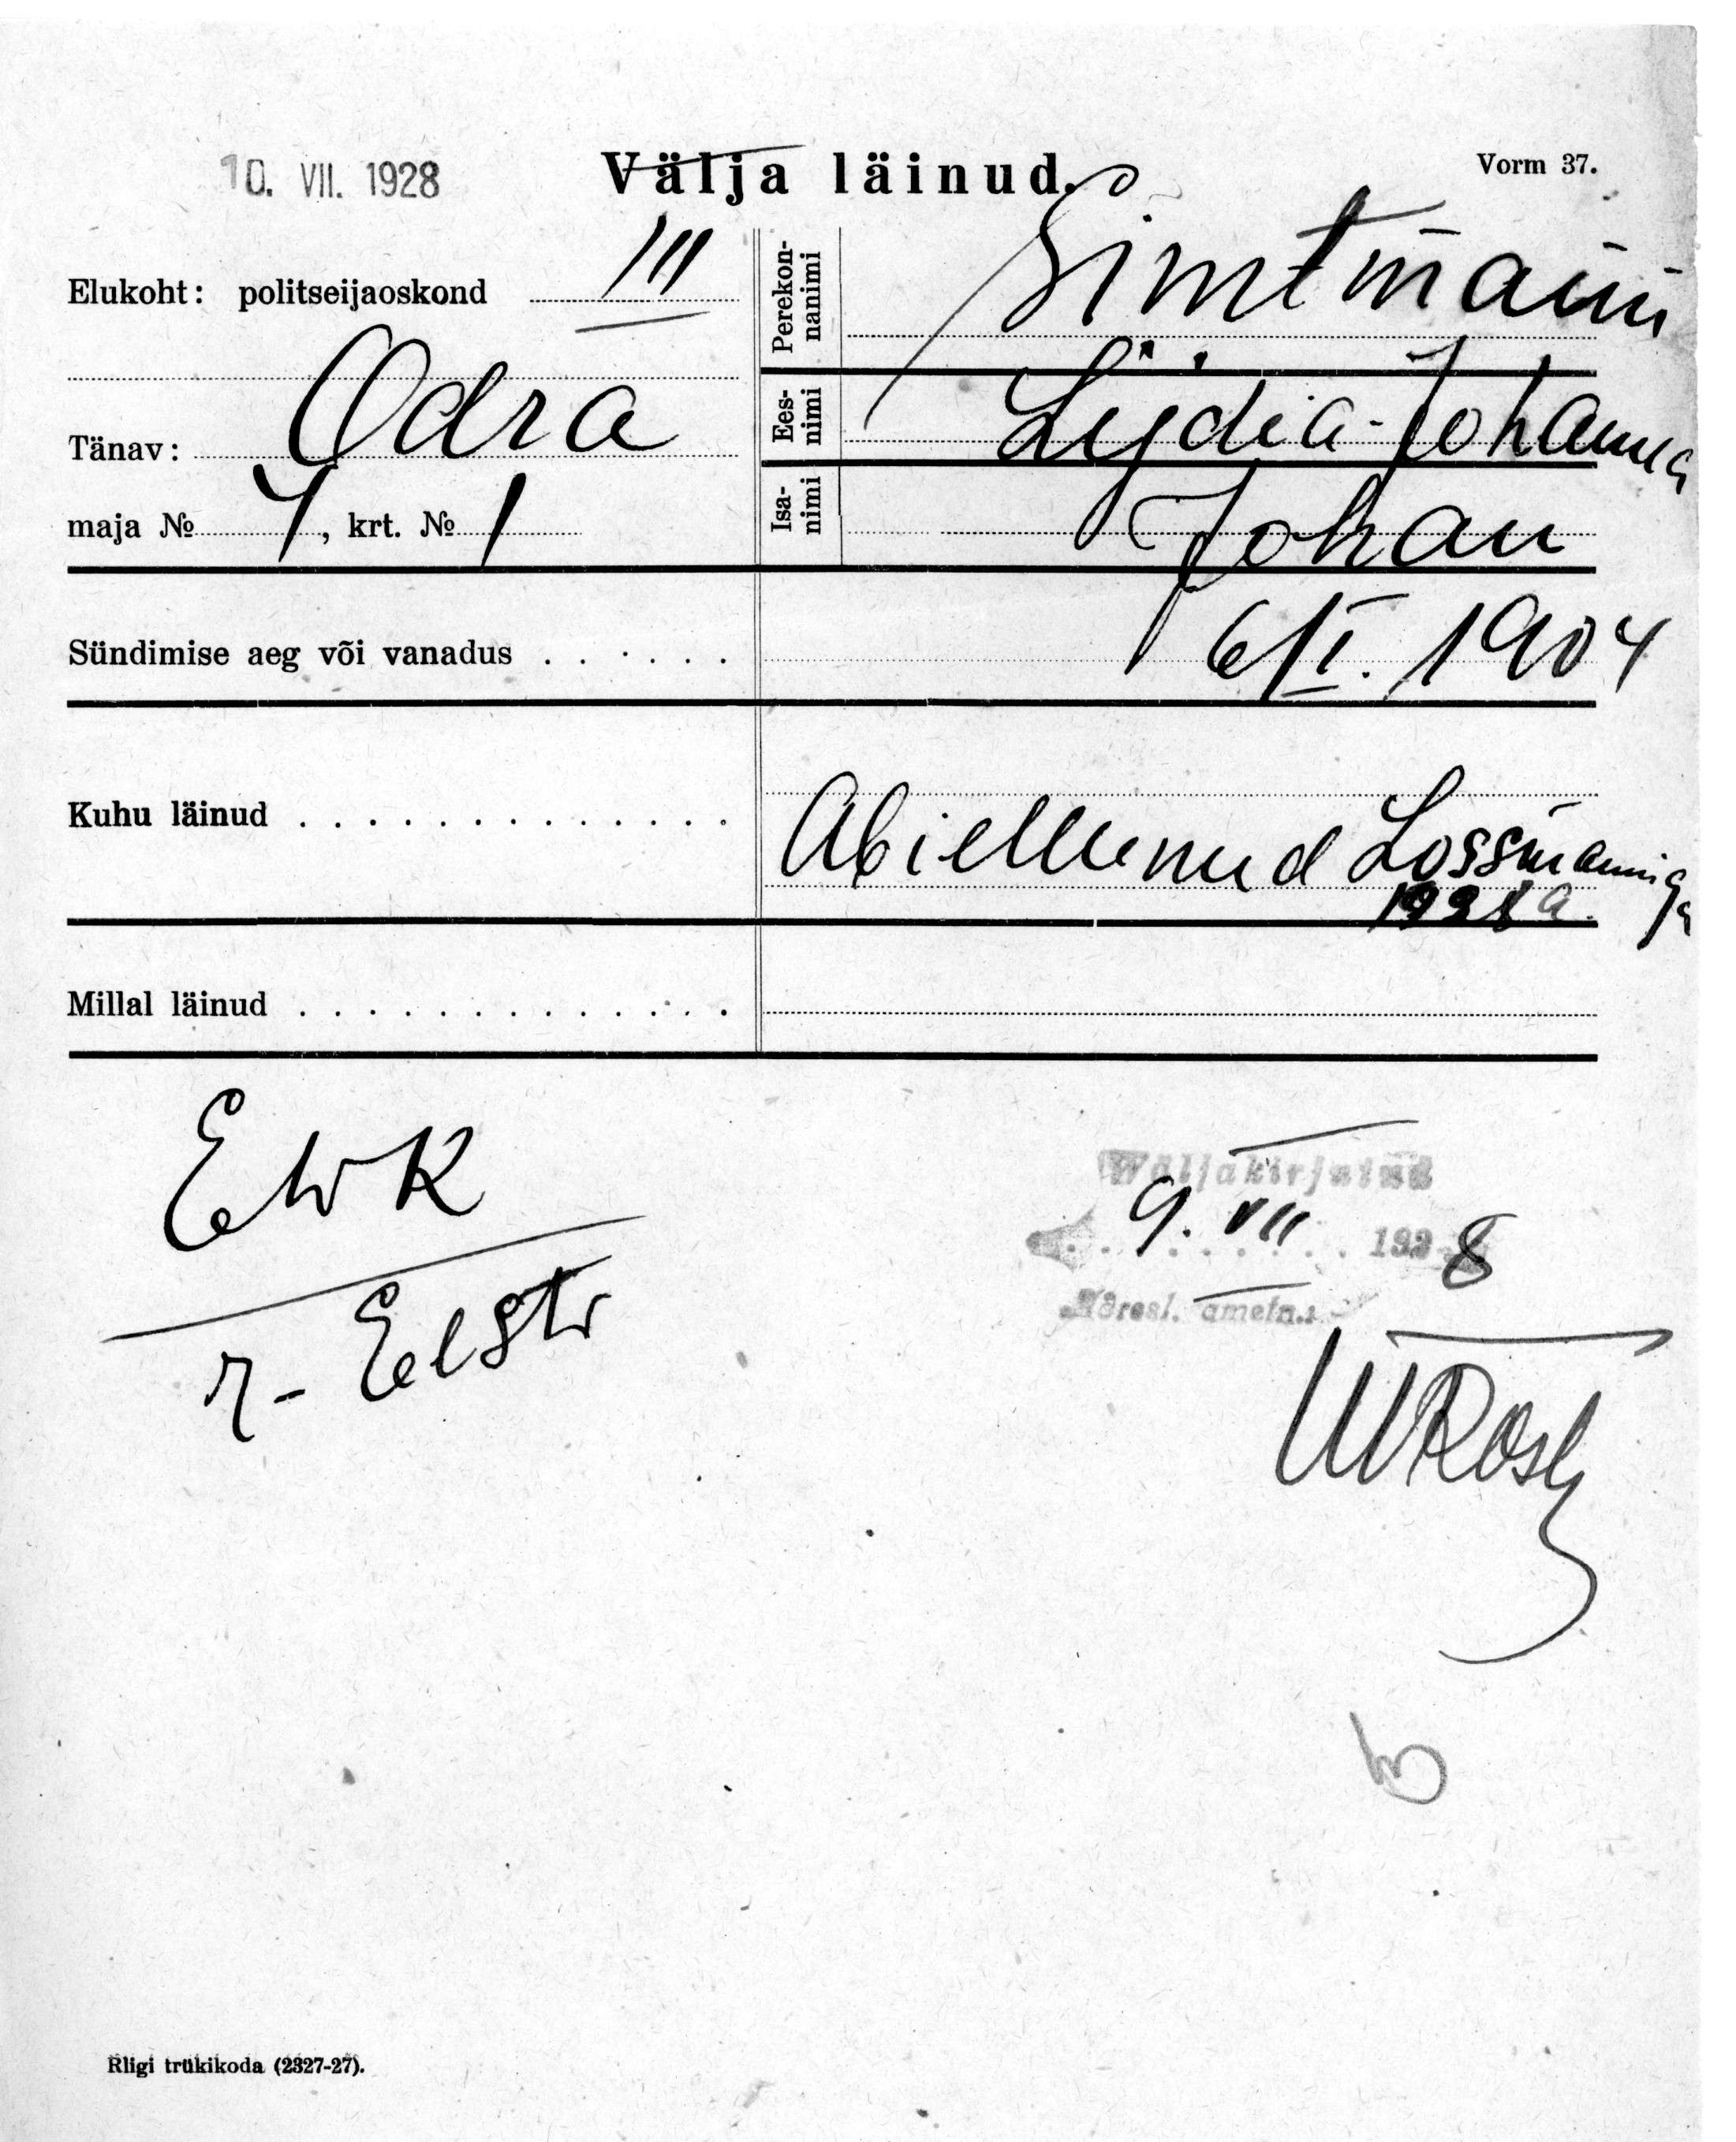 10. VII. 1928
Välja läinud.
Vorm 37.
Elukoht: politseijaoskond III
Tänav: Odra
maja № 4, krt. № 1
Perekon-
nanimi
Simtmann
Ees-
nimi
Lydia-Johanna
Isa-
nimi
Johan
Sündimise aeg või vanadus . . . . . . 6/I. 1904
Kuhu läinud . . . . . . . . . . . . . Abiellunud Lossmanniga
1928 a.
Millal läinud . . . . . . . . . . . . .
Ewk
r-Eestr
Wäljakirjutud
9. VII 1928
Adresl. ametn.:
Riigi trükikoda (2327-27).